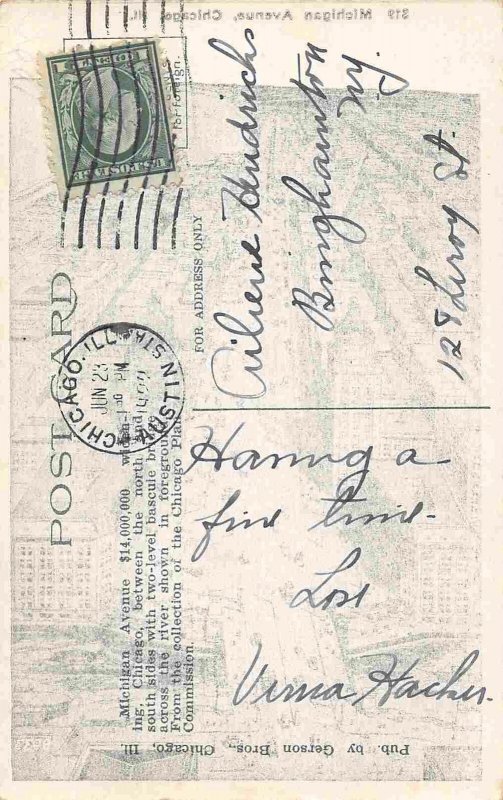 319 Michigan Avenue, Chicago, Ill.
POST CARD
FOR ADDRESS ONLY
for foreign.
U.S. POSTAGE
CHICAGO, ILL.
JUN 23
PM
AUSTIN STA
Michigan Avenue $14,000,000 widen-
ing, Chicago, between the north and
south sides with two-level bascule bridge
across the river shown in foreground.
From the collection of the Chicago Plan
Commission.
Pub. by Gerson Bros., Chicago, Ill.
Hendricks
Binghamton
NY.
128 Leroy St.
Having a
fine time.
Love
Verna Hacker.